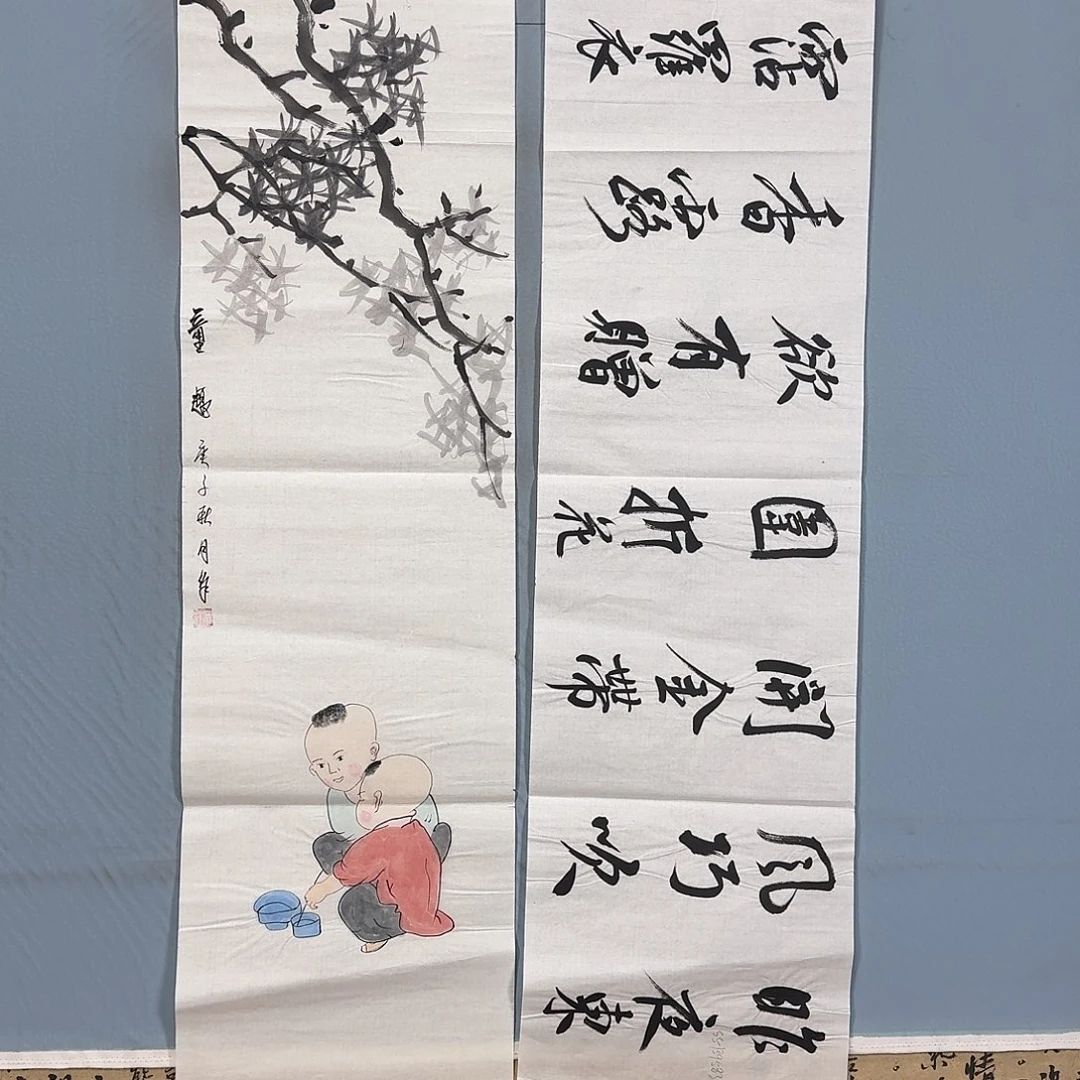 童趣 庚子秋月作
昨夜東
風巧吹
開金帶
圍折花
欲有贈
香露
霑羅衣
情